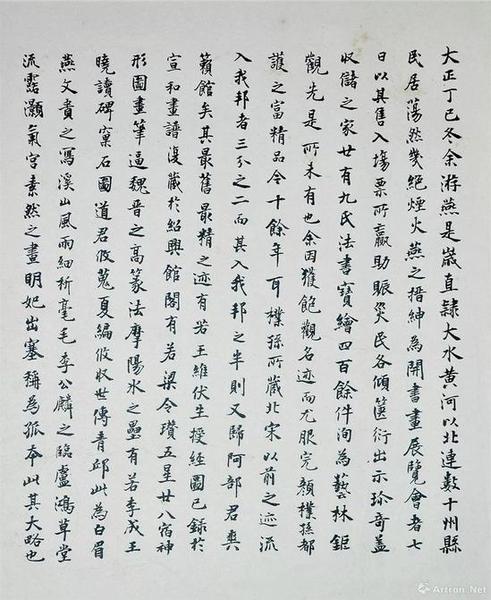 大正丁巳冬余游燕是歲直隸大水黄河以北連數十州縣
民居蕩然幾絕煙火燕之搢紳為開書畫展覽會者七
日以其售入場票所贏助賑災民各傾篋衍出示珍奇蓋
收儲之家廿有九氏法書寶繪四百餘件洵為藝林鉅
觀先是所未有也余因獲飽觀名迹而尤服完顏樸孫都
護之富精品今十餘年耳樸孫所藏北宋以前之迹流
入我邦者三分之二而其入我邦之半則又歸阿部君爽
籟館矣其最舊最精之迹有若王維伏生授經圖已錄於
宣和畫譜復藏於紹興館閣有若梁令瓚五星廿八宿神
形圖畫筆逼魏晉之高篆法摩陽冰之壘有若李成王
曉讀碑窠石圖道君攸蒐夏編攸收世傳青邱此為白眉
燕文貴之寫溪山風雨細析毫毛李公麟之臨盧鴻草堂
流露灝氣宮素然之畫明妃出塞稱為孤本此其大略也
Artron.Net